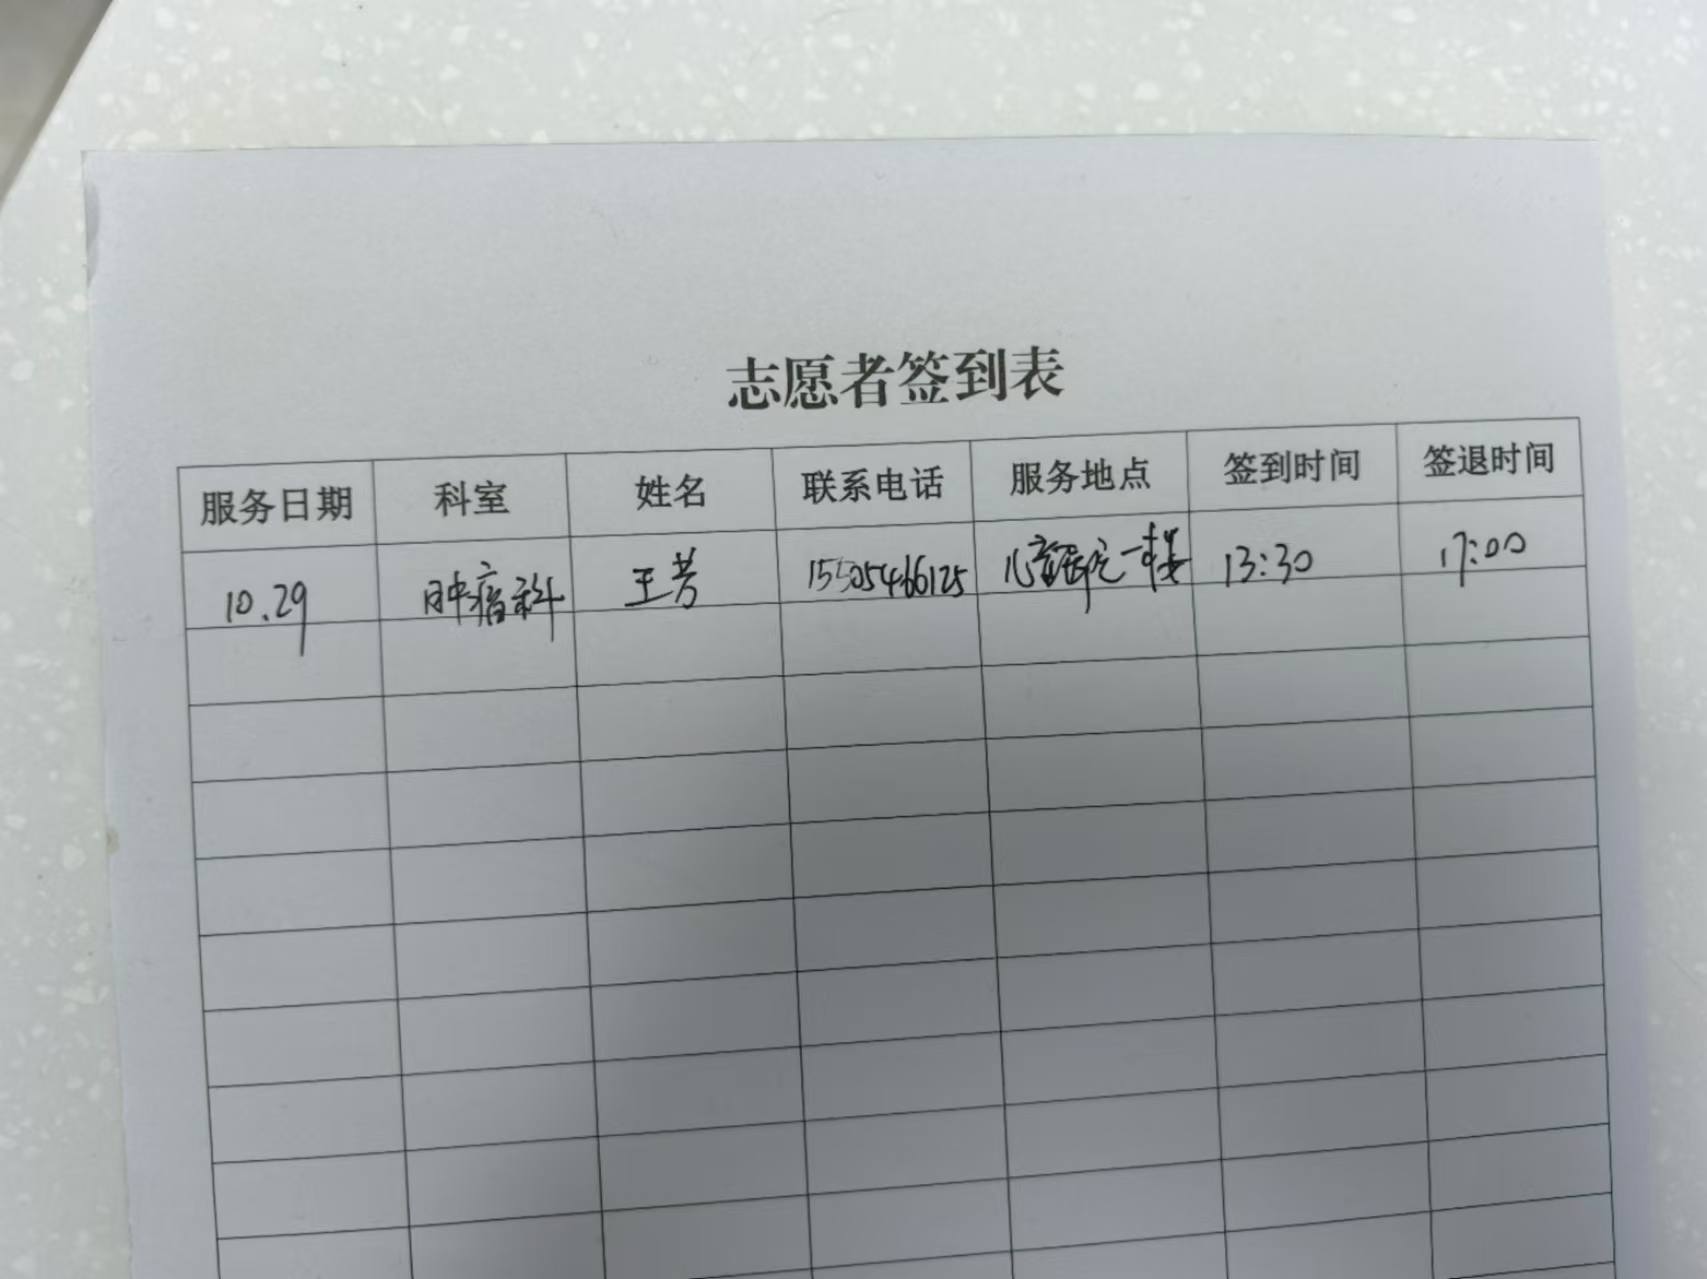 志愿者签到表
服务日期 科室 姓名 联系电话 服务地点 签到时间 签退时间
10.29 肿瘤科 王芳 15505466125 儿童医院一楼 13:30 17:00